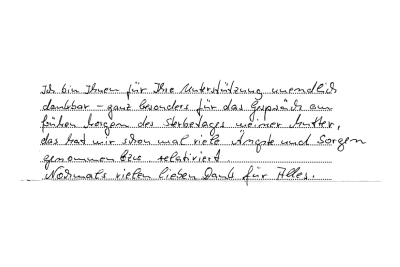 Ich bin Ihnen für Ihre Unterstützung unendlich
dankbar - ganz besonders für das Gespräch am
frühen Morgen des Sterbetages meiner Mutter,
das hat mir schon mal viele Ängste und Sorgen
genommen bzw. relativiert.
Nochmals vielen lieben Dank für Alles.